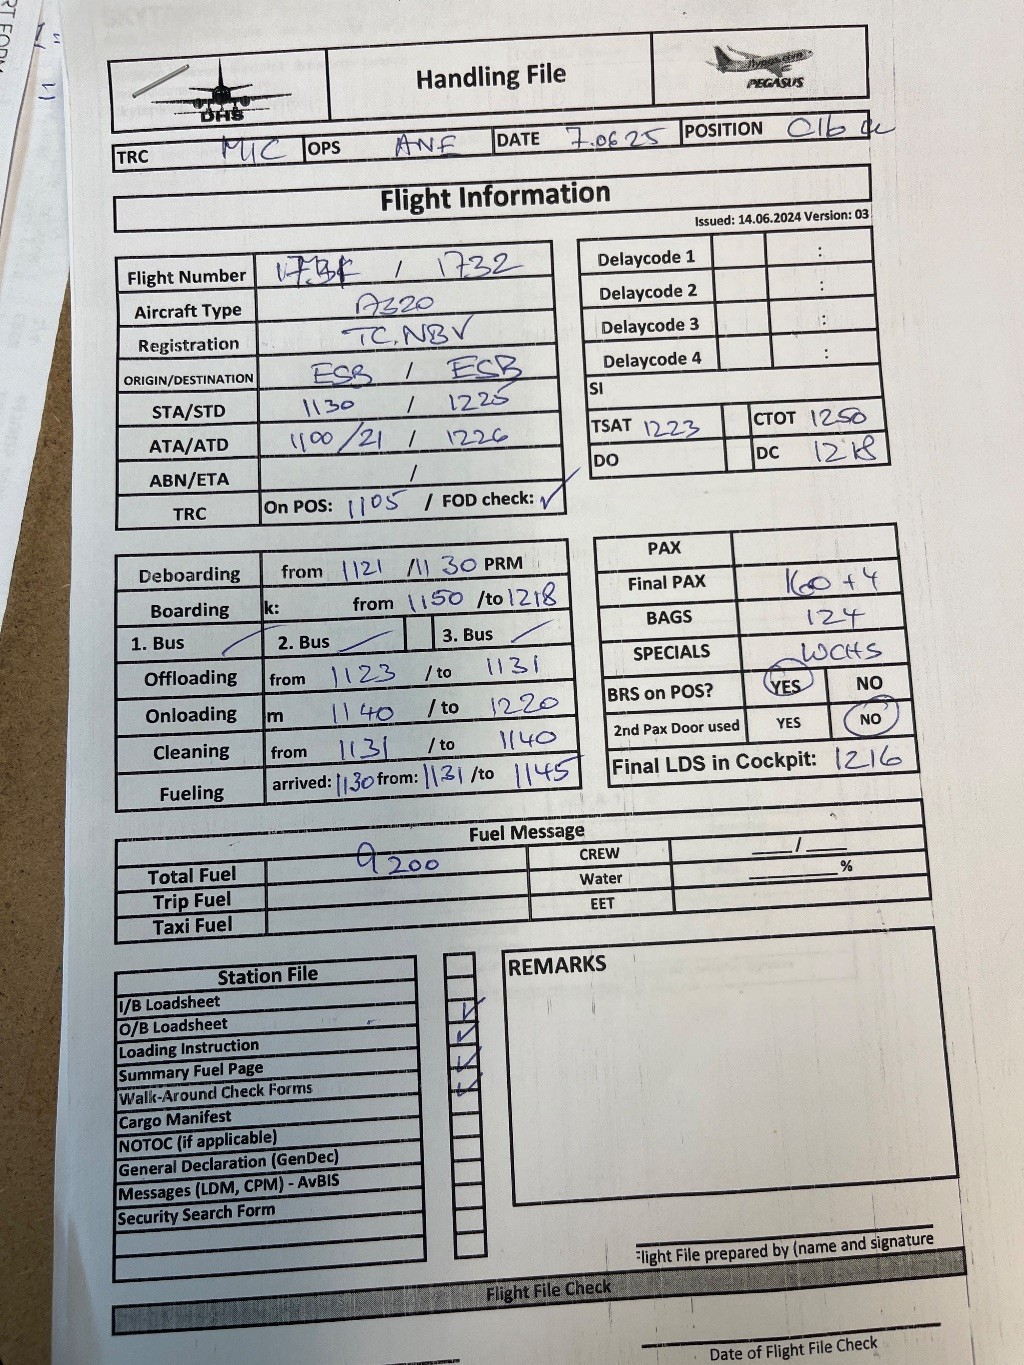 RT FORM
DHS
Handling File
flypgs.com
PEGASUS
TRC MIC OPS ANE DATE 7.06 25 POSITION 01b
Flight Information
Issued: 14.06.2024 Version: 03
Flight Number 1731 / 1732
Aircraft Type A320
Registration TC.NBV
ORIGIN/DESTINATION ESB / ESB
STA/STD 1130 / 1225
ATA/ATD 1100/21 / 1226
ABN/ETA /
TRC On POS: 1105 / FOD check: ✓
Delaycode 1 :
Delaycode 2 :
Delaycode 3 :
Delaycode 4 :
SI
TSAT 1223 CTOT 1250
DO DC 1218
Deboarding from 1121 /1130 PRM
Boarding k: from 1150 /to 1218
1. Bus 2. Bus 3. Bus
Offloading from 1123 /to 1131
Onloading m 1140 /to 1220
Cleaning from 1131 /to 1140
Fueling arrived: 1130 from: 1131 /to 1145
PAX
Final PAX 160+4
BAGS 124
SPECIALS WCHS
BRS on POS? YES NO
2nd Pax Door used YES NO
Final LDS in Cockpit: 1216
Fuel Message
Total Fuel 9200 CREW ___/___
Trip Fuel Water ______%
Taxi Fuel EET
Station File
I/B Loadsheet
O/B Loadsheet
Loading Instruction
Summary Fuel Page
Walk-Around Check Forms
Cargo Manifest
NOTOC (if applicable)
General Declaration (GenDec)
Messages (LDM, CPM) - AvBIS
Security Search Form
REMARKS
Flight File prepared by (name and signature
Flight File Check
Date of Flight File Check